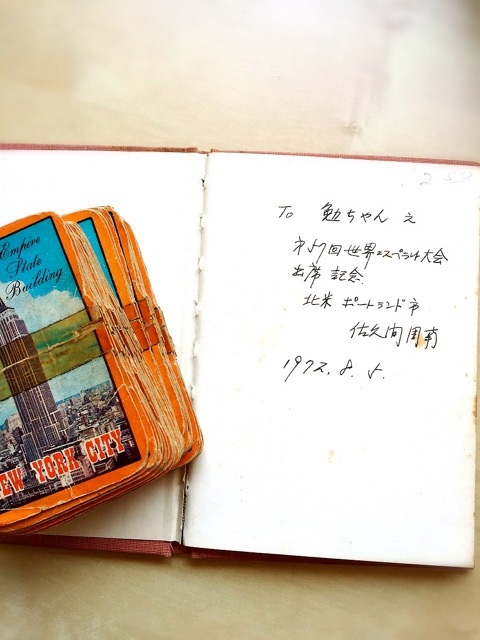 Empire
State
Building
NEW YORK CITY
To 勉ちゃん え
第57回世界エスペラント大会
出席 記念
北米 ポートランド市
佐久間
1972.8.5.